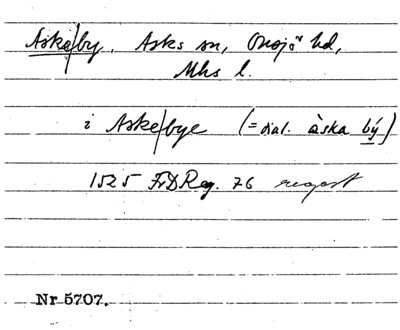 Aske/by. Asks sn, Onsjö hd,
Mhs l.
i Aske/bye (= dial. àska bý)
1525 FrDReg. 76 regest
Nr 5707.